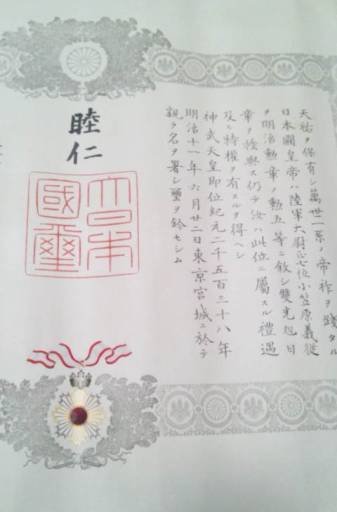 天祐ヲ保有シ萬世一系ノ帝祚ヲ踐タル
日本國皇帝ハ陸軍大尉正七位小笠原義從
ヲ明治勳章ノ勳五等ニ敘シ雙光旭日
章ヲ授與ス仍テ汝ハ此位ニ屬スル禮遇
及ヒ特權ヲ有スルヲ得ヘシ
神武天皇即位紀元二千五百三十八年
明治十一年六月廿二日東京宮城ニ於テ
親ラ名ヲ署シ璽ヲ鈐セシム
睦仁
大日本
國璽